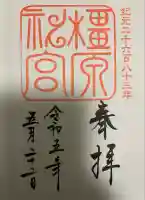 紀元二千六百八十三年
奉拝
橿原
神宮
令和五年
五月